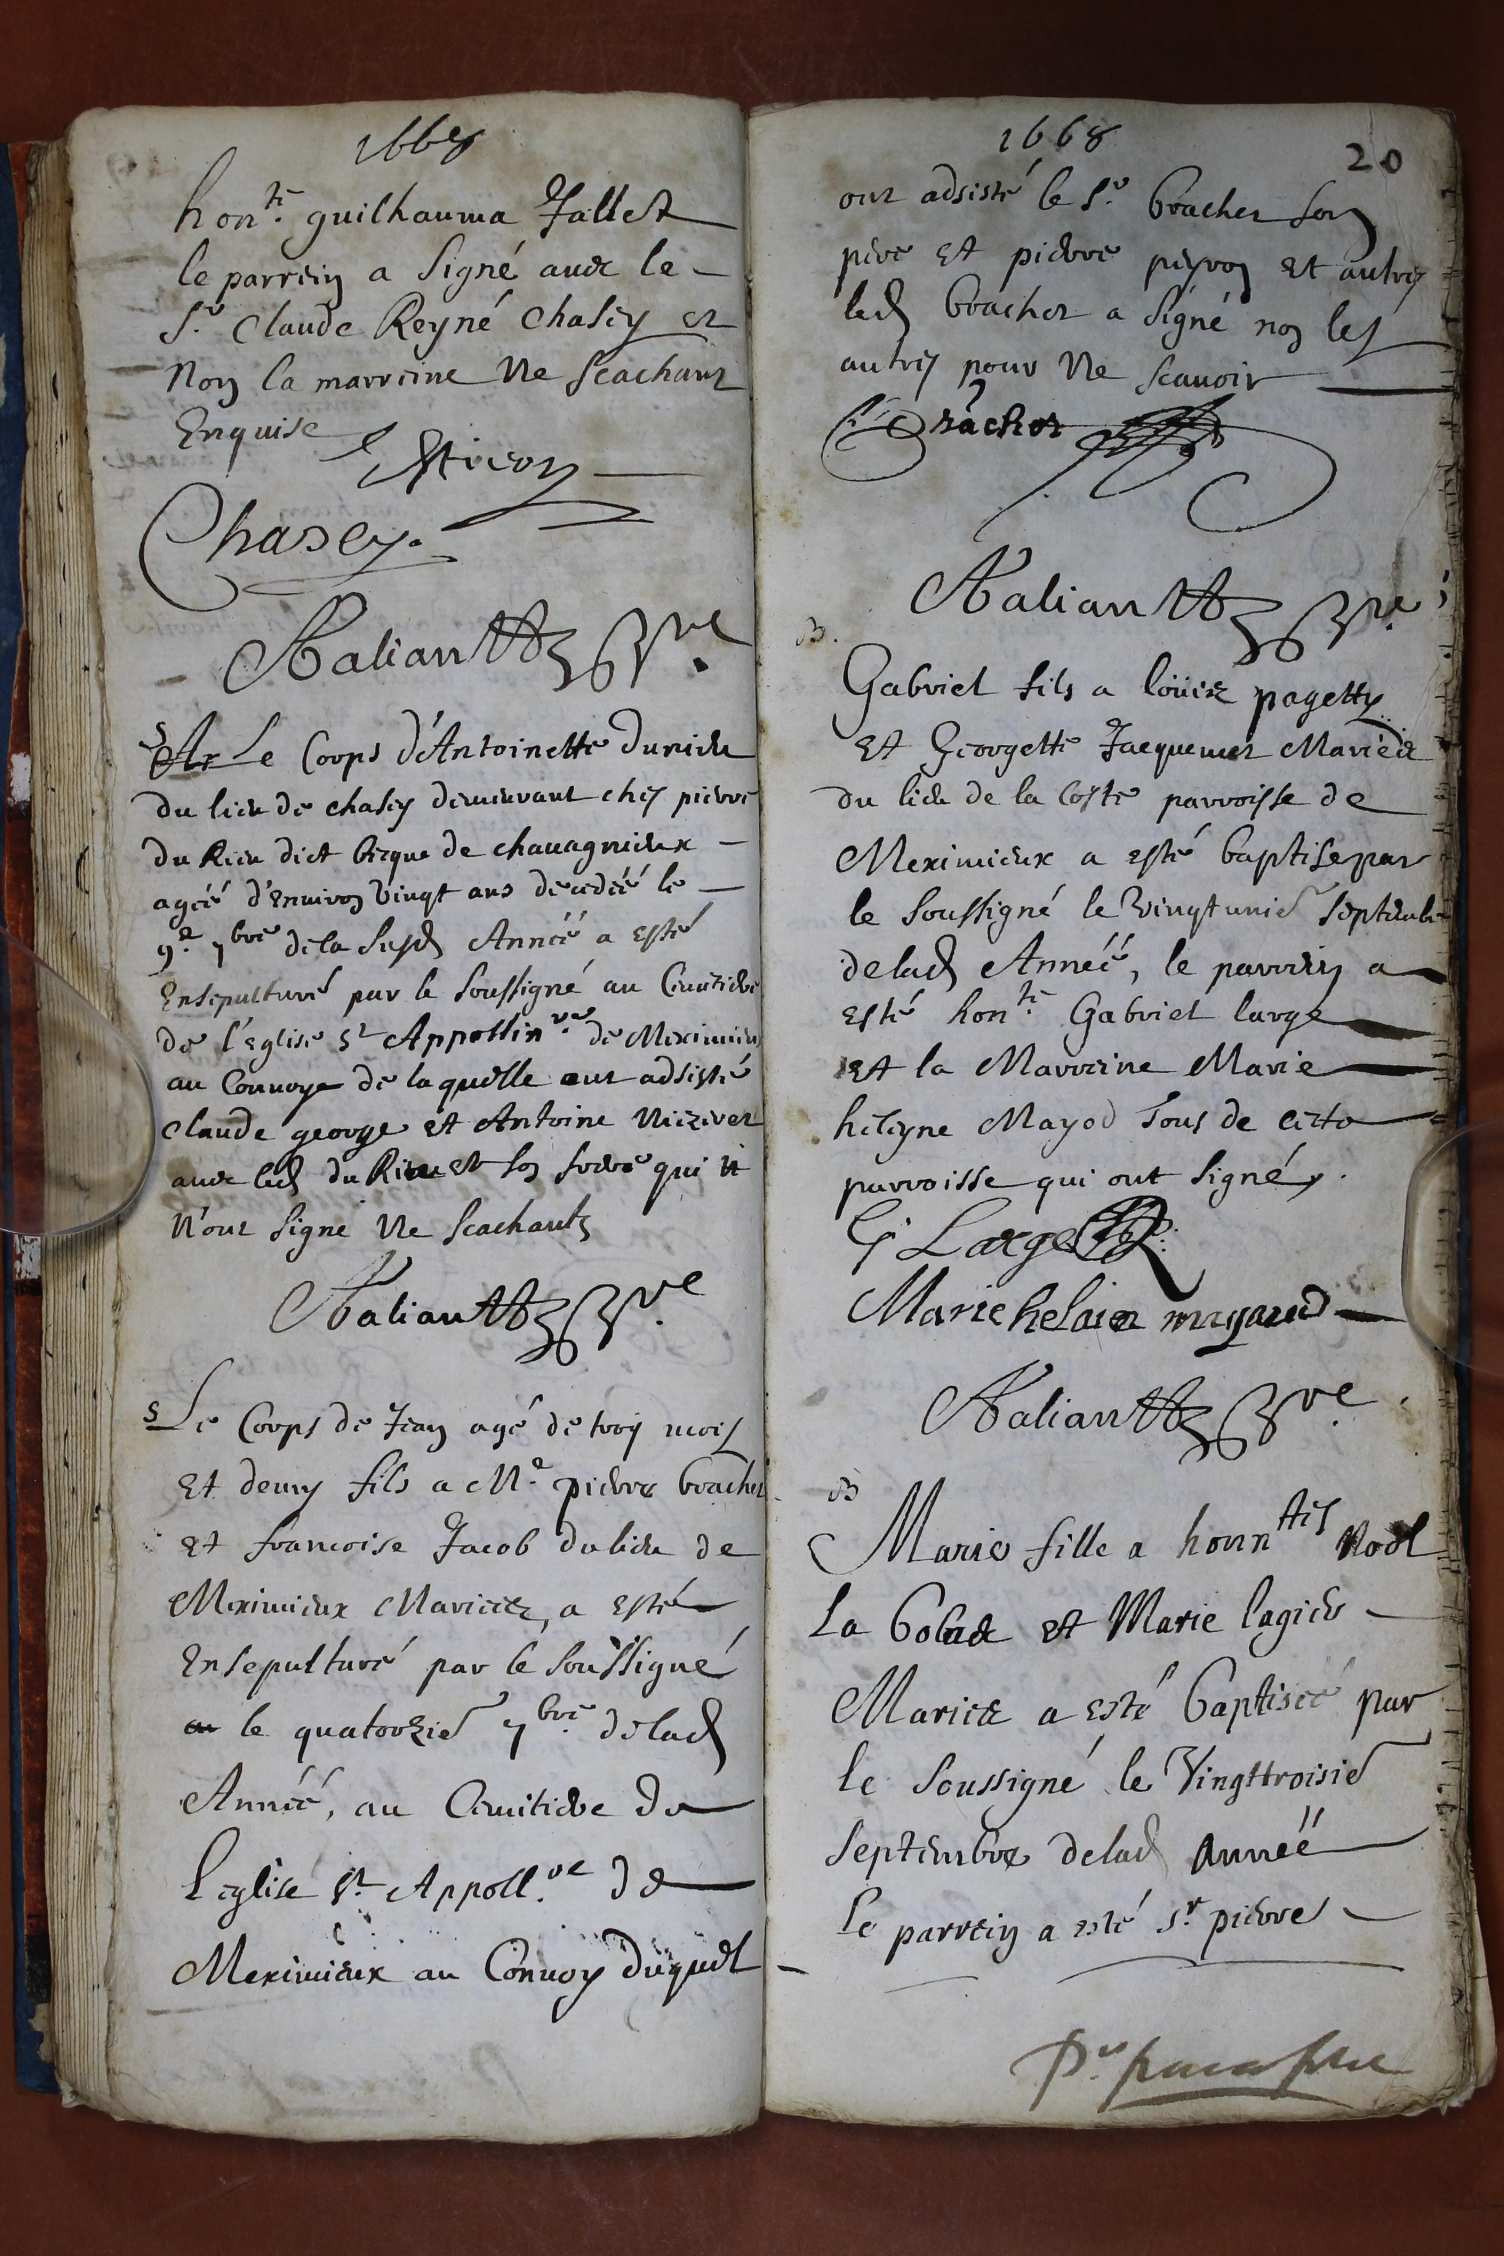 1668
hon.te guilhauma Jallet
le parrein a Signé avec le
S.r Claude Reyné Chasey et
Non la marreine Ne Scachant
Enquise
Chasey.
Valiantz V.re
S Le Corps d'Antoinette Durieu
du lieu de chasey demeurant chez pierre
du Rieu dict becque de chavagnieux
agéé d'environ Vingt ans decedéé le
9.e 7bre dela Susd Annéé a esté
Ensepulturé par le Soussigné au Cemitiere
de l'Eglise St Appollin.re de Meximieu
au Convoye de laquelle ont adsisté
Claude george et Antoine
avec led du Rieu et son frere qui
N'ont Signé Ne Scachantz
Valiantz V.re
S Le Corps de Jean agé de troy mois
et demy fils a M.e pierre bracher
et francoise Jacob du lieu de
Meximieux Mariéez, a esté
Ensepulturé par le Soussigné
le quatorzie 7bre delad
Annéé, au Cemitiere de
l'eglise St Appoll.re de
Meximieux au Convoy duquel
1668
20
ont adsisté le S.r bracher son
pere et pierre peyron et autres
led bracher a Signé non les
autres pour Ne Scavoir
Bracher
Valiantz V.re
B.
Gabriel fils a loüis pagetty
et Georgette Jacquemet Mariéé
du lieu de la Coste parroisse de
Meximieux a esté baptise par
le Soussigné le vingtunie Septembre
delad Annéé, le parrein a
esté hon.te Gabriel large
et la Marreine Marie
heleyne Mayod Tous de cette
parroisse qui ont Signé.
G Large
Marie helaine mayaud
Valiantz V.re
B
Marie fille a honntes Noel
La bobae et Marie lagier
Mariéé a esté baptiséé par
le Soussigné le Vingttroisie
Septembre delad Annéé
le parrein a esté S.r pierre